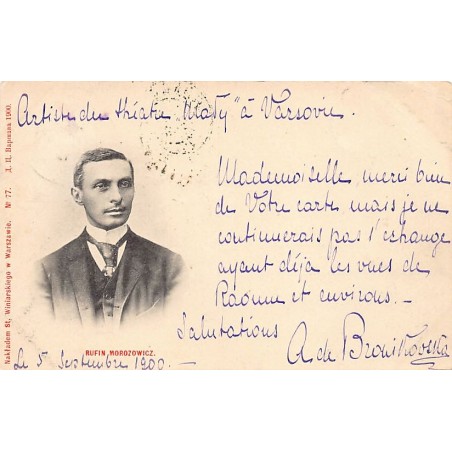 Artiste du théatre "Maly" à Varsovie.
Mademoiselle merci bien
de Votre carte mais je ne
continuerais pas l'eshange
ayant déja les vues de
et environs. -
Salutations
A de Bronikowska
RUFIN MOROZOWICZ.
Le 5 Septembre 1900.
Nakładem St. Winiarskiego w Warszawie. № 77. Д. Ц. Варшава 1900.